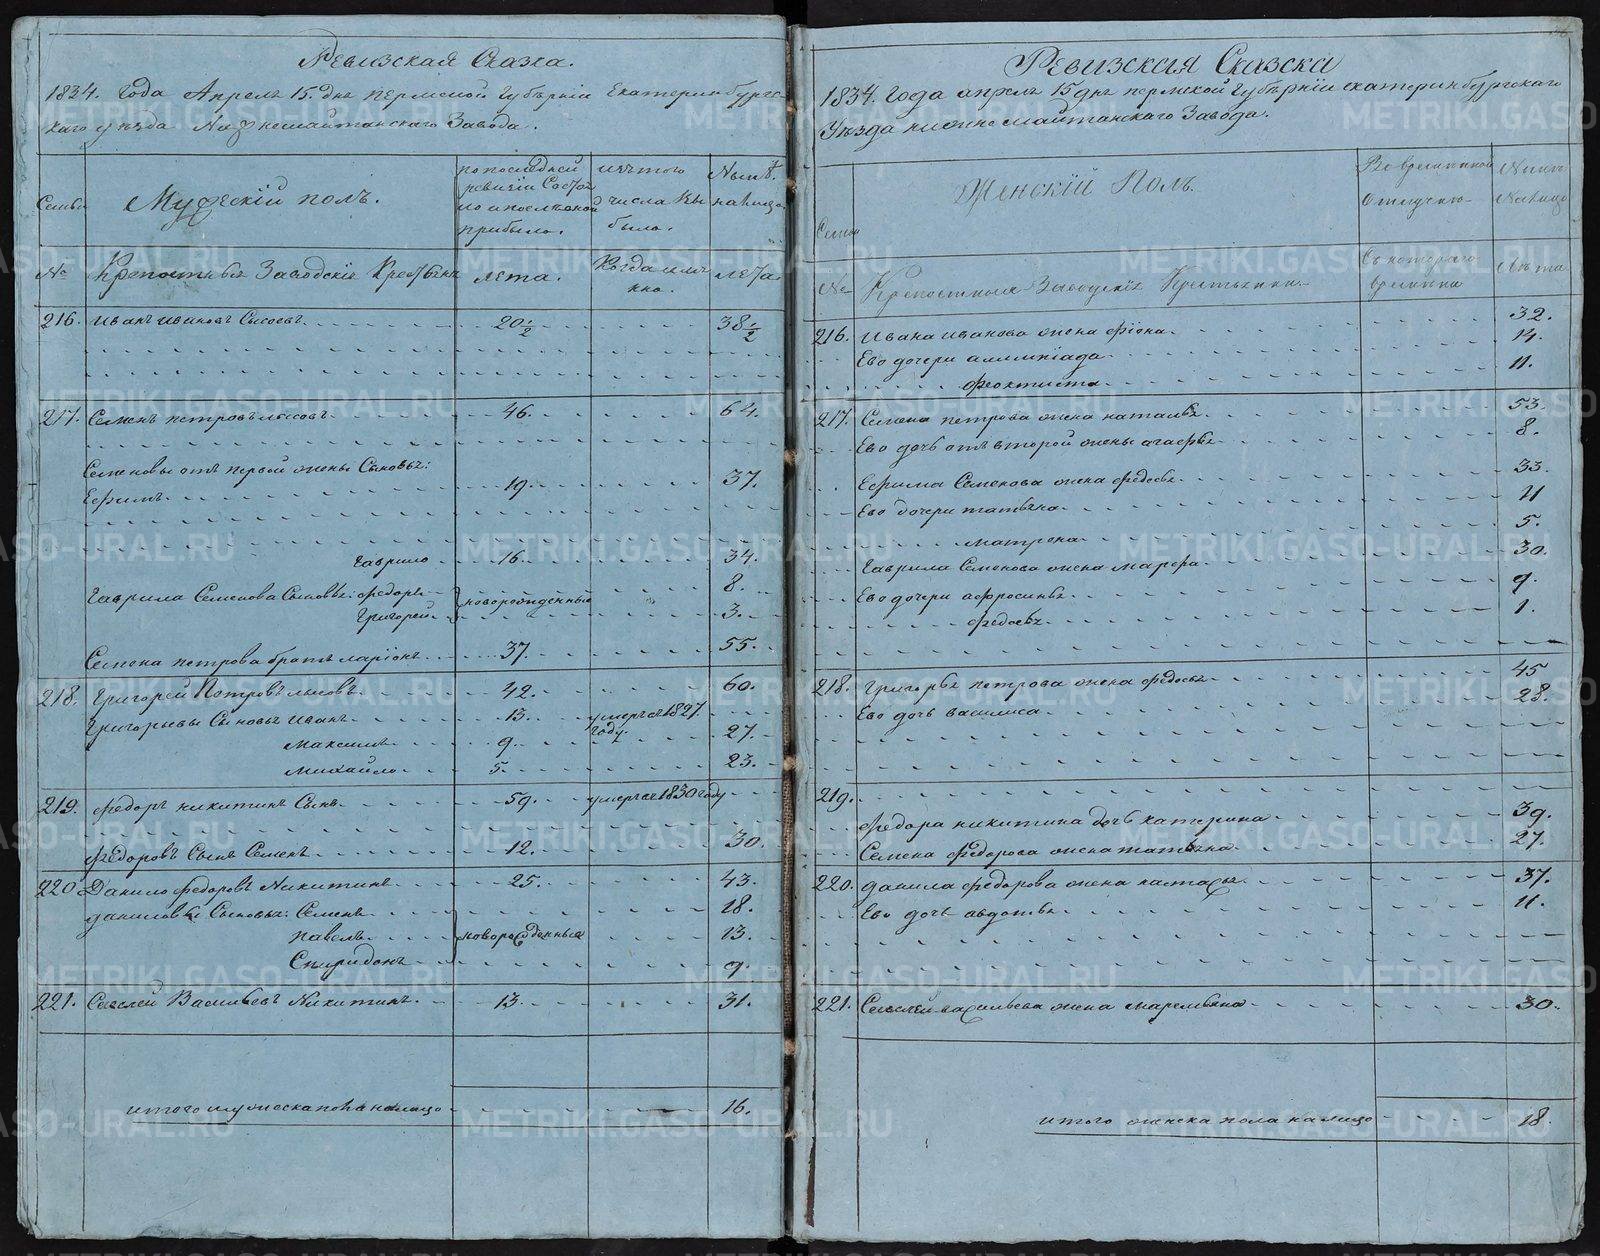 Ревизская Сказка.
1834. года Апреля 15. дня Пермской Губѣрнiи Екатеринбургс-
каго уѣзда Нижнемайтанскаго Завода.
Семьи
Мужескiй полъ.
по последней ревизiи Состояло и после оной прибыло.
изъ того числа выбыло.
Нынѣ налицо
№
Крепостныя Заводскiе Крестьяна
лета.
Когда имянно.
лета.
216. Иванъ Ивановъ Сысоевъ. 20½ 38½
217. Семенъ петровъ лысовъ. 46. 64.
Семеновы отъ первой жены Сыновья:
Ефимъ. 19. 37.
Гаврило 16. 34.
Гаврила Семенова Сыновья: Федоръ новорожденные 8.
Григорей. 3.
Семена петрова братъ ларiонъ 37. 55.
218. Григорей Петровъ лысовъ 42. 60.
Григорьевы Сыновья Иванъ. 13. умеръ в 1827 году.
Максимъ 9. 27.
Михайло 5. 23.
219. Федоръ никитинъ Сынъ. 59. умеръ в 1830 году
Федоровъ Сынъ Семенъ. 12. 30.
220. Данило федоровъ Никитинъ. 25. 43.
даниловы Сыновья: Семенъ 18.
павелъ новорожденныя 13.
Спиридонъ 9.
221. Савелей Васильевъ Никитинъ. 13. 31.
итого мужеска пола налицо 16.
Ревизская Сказска
1834. года апреля 15 дня пермской губѣрнiи екатеринбургскаго
Уѣзда нижнемайтанскаго Завода.
Семьи
Женскiй Полъ.
Во временной отлучке
Ныне Налицо
№
Крепостныя Заводскiя Крестьянки
Съ котораго времяни
Лѣта
216. Ивана иванова жена Фiона. 32.
Ево дочери алимпiада 14.
Феоктиста 11.
217. Семена петрова жена наталья. 53.
Ево дочь отъ второй жены агафья 8.
Ефима Семенова жена федосья 33.
Ево дочери татьяна 11
матрена 5.
Гаврила Семенова жена марфа. 30.
Ево дочери афросинья 9.
федосья 1.
218. Григорья петрова жена федосья 45
Ево дочь василиса 28.
219.
Федора никитина дочь катерина 39.
Семена федорова жена татьяна 27.
220. данила федорова жена настасья 37.
Ево дочь авдотья 11.
221. Савелея васильева жена маремьяна 30.
итого женска пола налицо 18.
METRIKI.GASO-URAL.RU